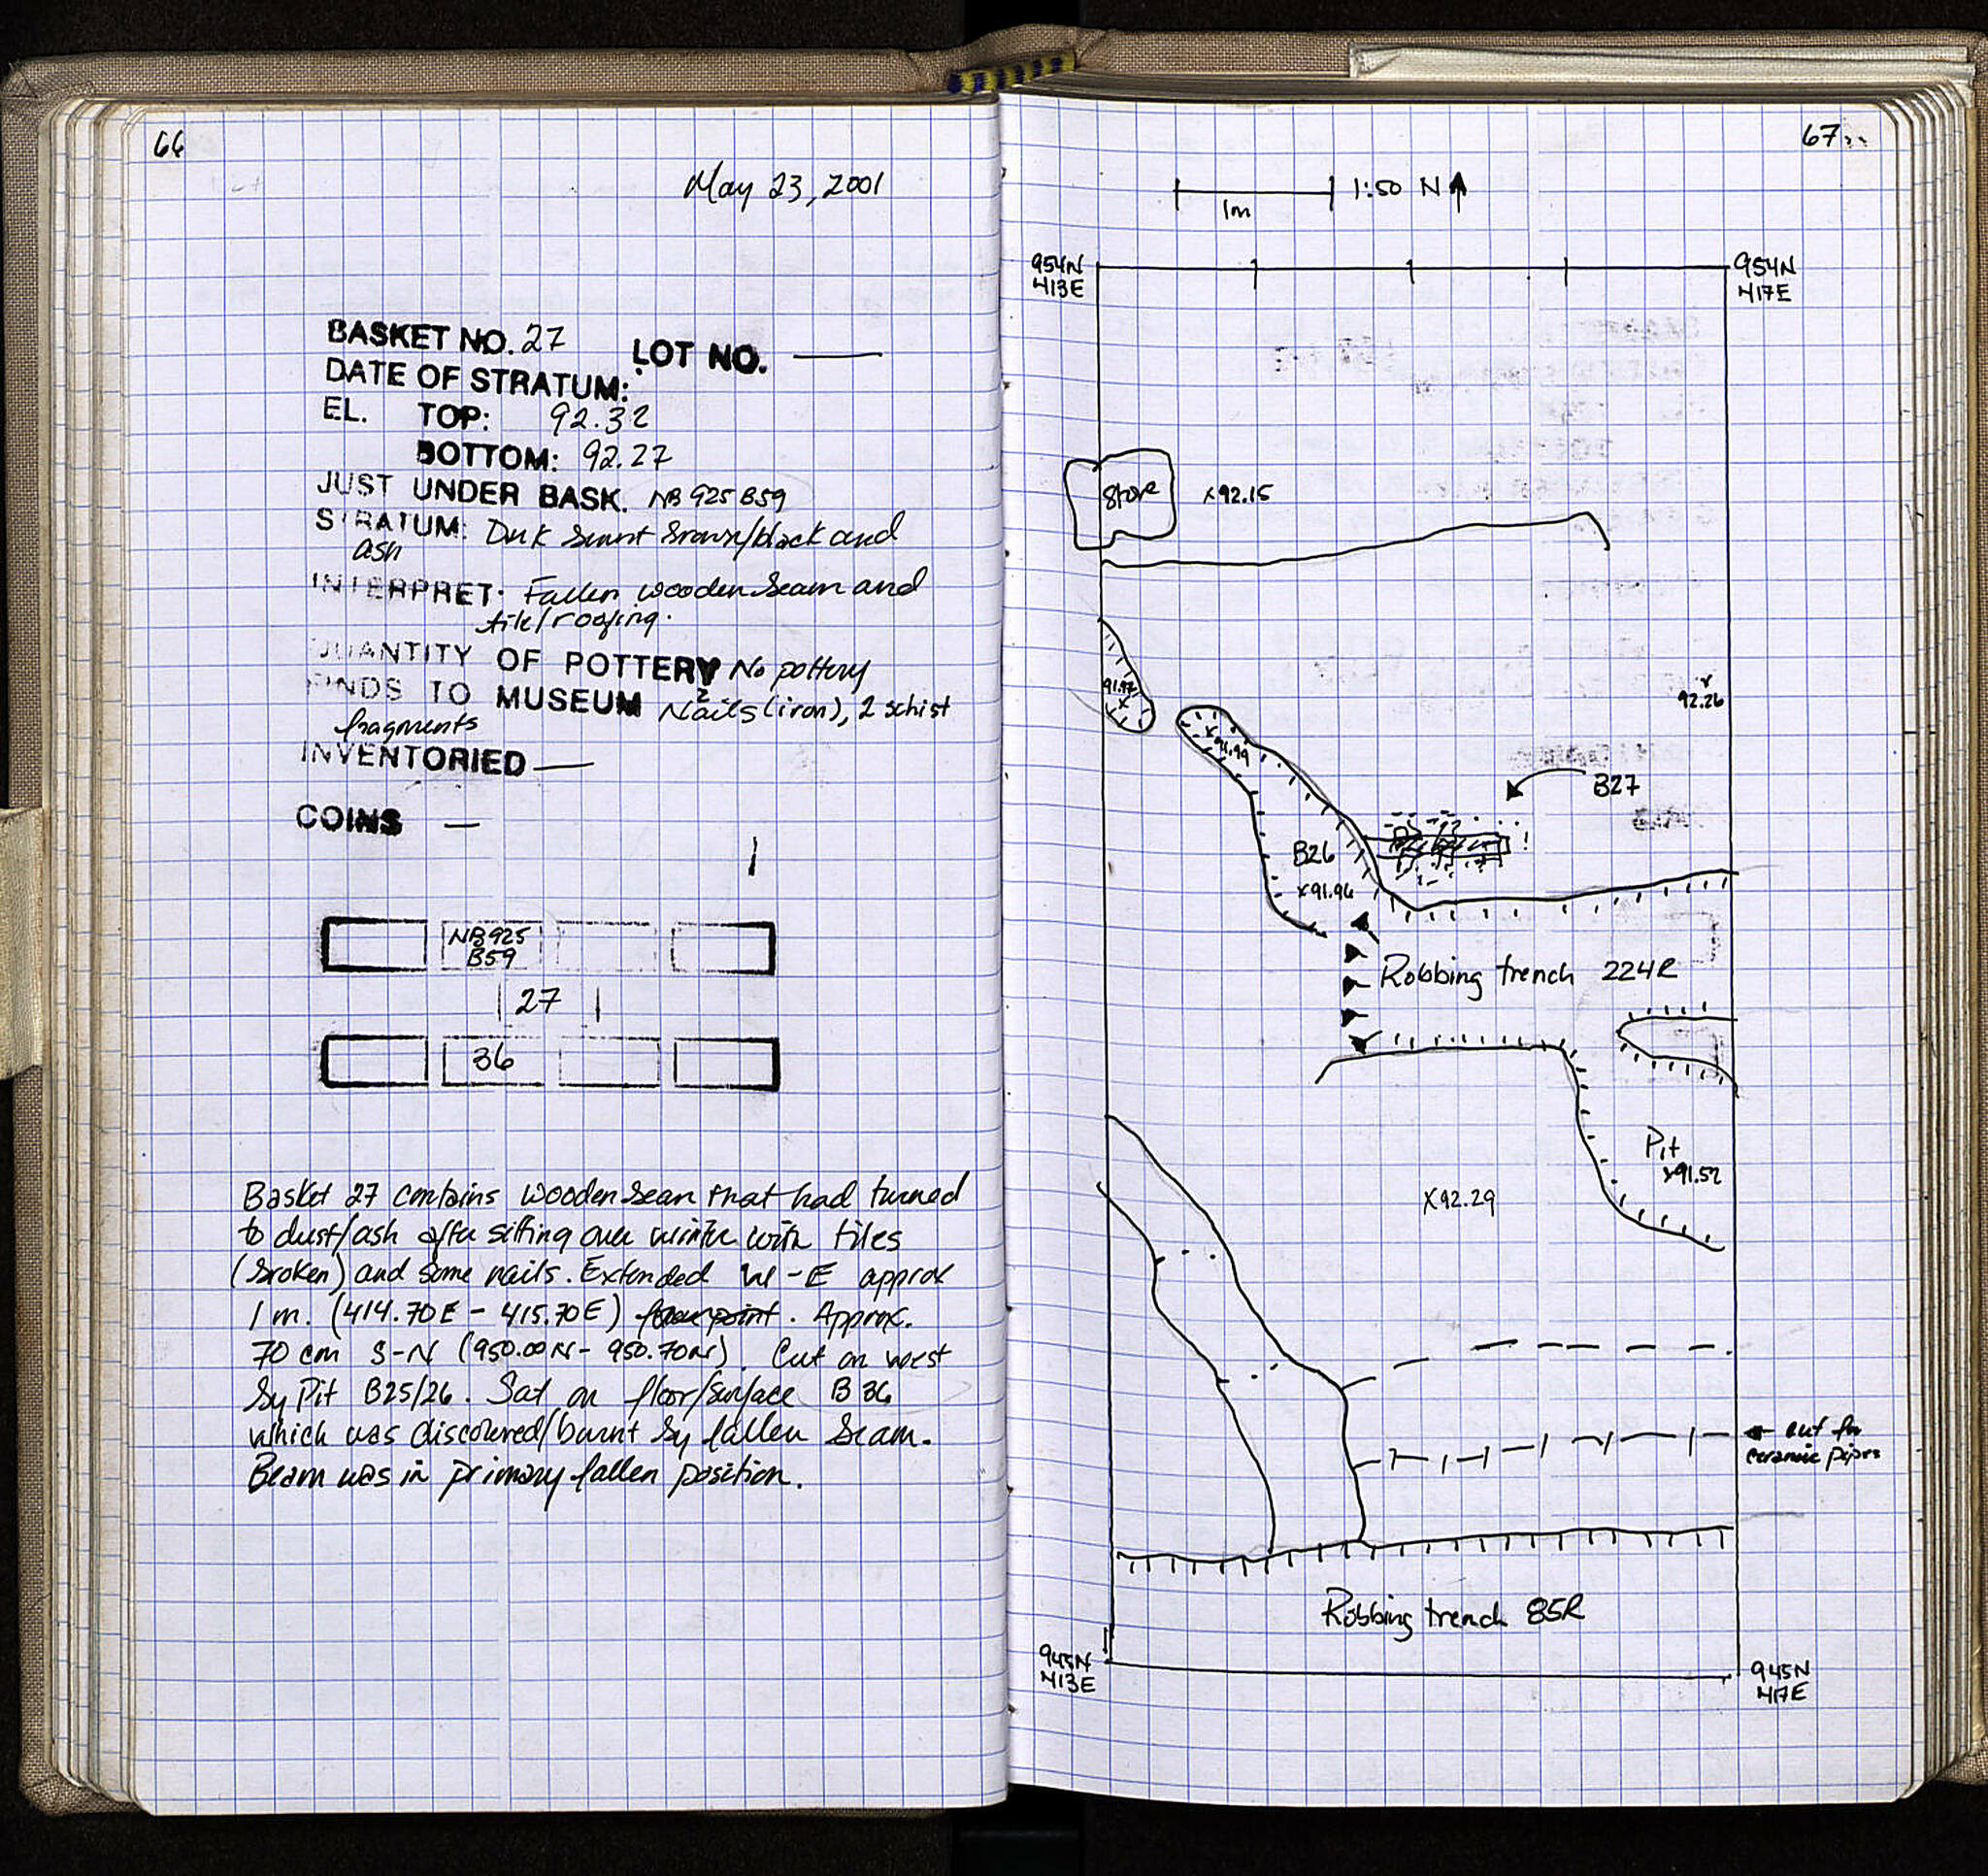 66
May 23, 2001
BASKET NO. 27 LOT NO. —
DATE OF STRATUM:
EL. TOP: 92.32
BOTTOM: 92.27
JUST UNDER BASK. NB 925 B59
STRATUM: Dark burnt brown/black and
ash
INTERPRET. Fallen wooden beam and
tile/roofing.
QUANTITY OF POTTERY No pottery
FINDS TO MUSEUM 2 Nails (iron), 2 schist
fragments
INVENTORIED —
COINS —
NB925
B59
27
36
Basket 27 contains wooden beam that had turned
to dust/ash after sitting over winter with tiles
(broken) and some nails. Extended W-E approx
1 m. (414.70E - 415.70E). Approx.
70 cm S-N (950.00N - 950.70N). Cut on west
by Pit B25/26. Sat on floor/surface B 36
which was discovered/burnt by fallen beam.
Beam was in primary fallen position.
67
1m 1:50 N
954N
413E
954N
417E
Stone x92.15
91.97
x
92.26
x91.99
B27
B26
x91.96
Robbing trench 224R
Pit
x91.52
x92.29
cut for
ceramic pipes
Robbing trench 85R
945N
413E
945N
417E